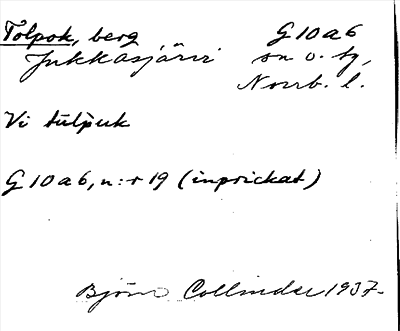 Tolpok, berg G10a6
Jukkasjärvi sn o. tg,
Norrb. l.
Vi tülpuk
G10a6, n:r 19 (inprickat)
Björn Collinder 1937